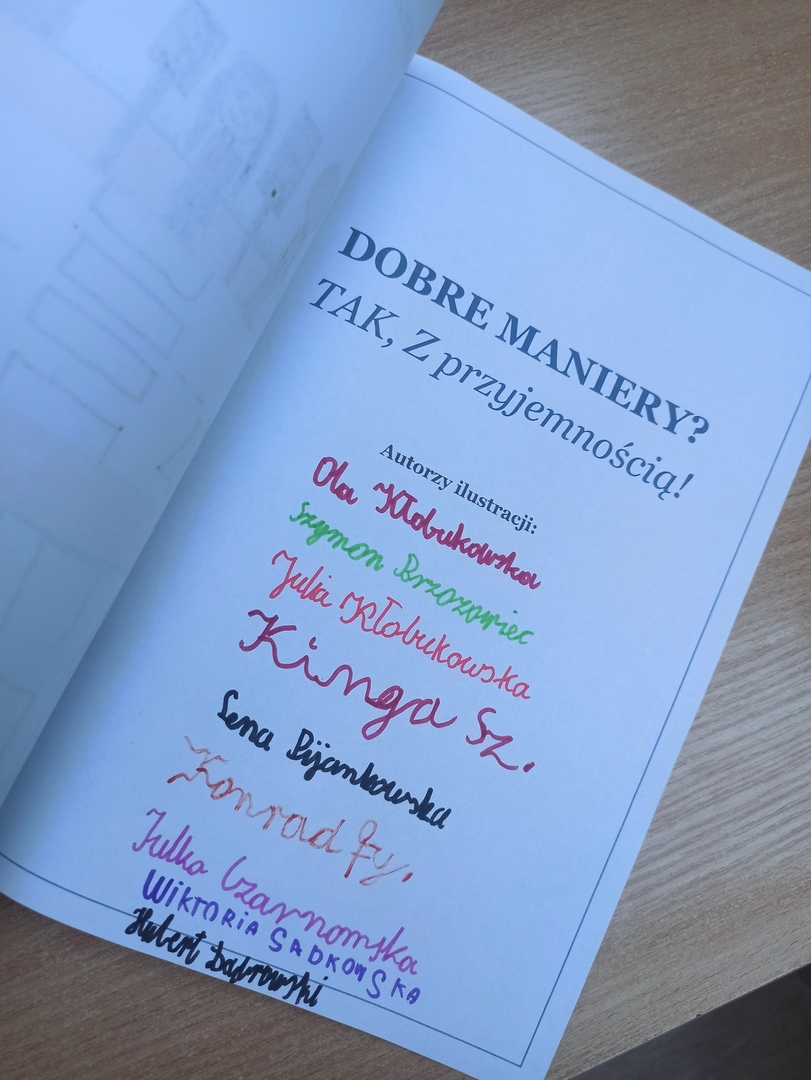 DOBRE MANIERY?
TAK, Z przyjemnością!
Autorzy ilustracji:
Ola Kłobukowska
Szymon Brzozowiec
Julia Kłobukowska
Kinga Sz.
Lena Pijankowska
Konrad
Julka Czarnomska
WIKTORIA SADKOWSKA
Hubert Dąbrowski